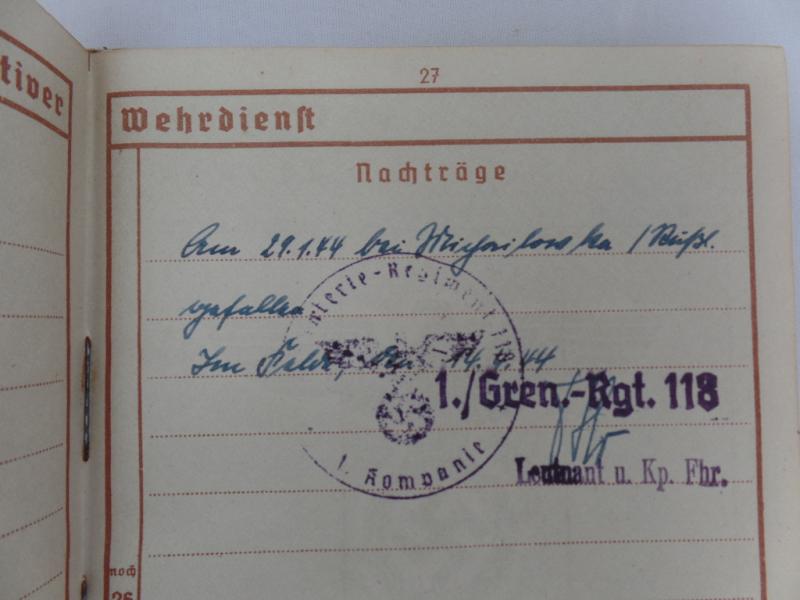 27
tiver
Wehrdienst
Nachträge
Am 29.1.44 bei Michailowka /Rußl.
gefallen
Im Felde, den 14.4.44
Infanterie-Regiment 118
1. Kompanie
1./Gren.-Rgt. 118
Leutnant u. Kp. Fhr.
noch
26